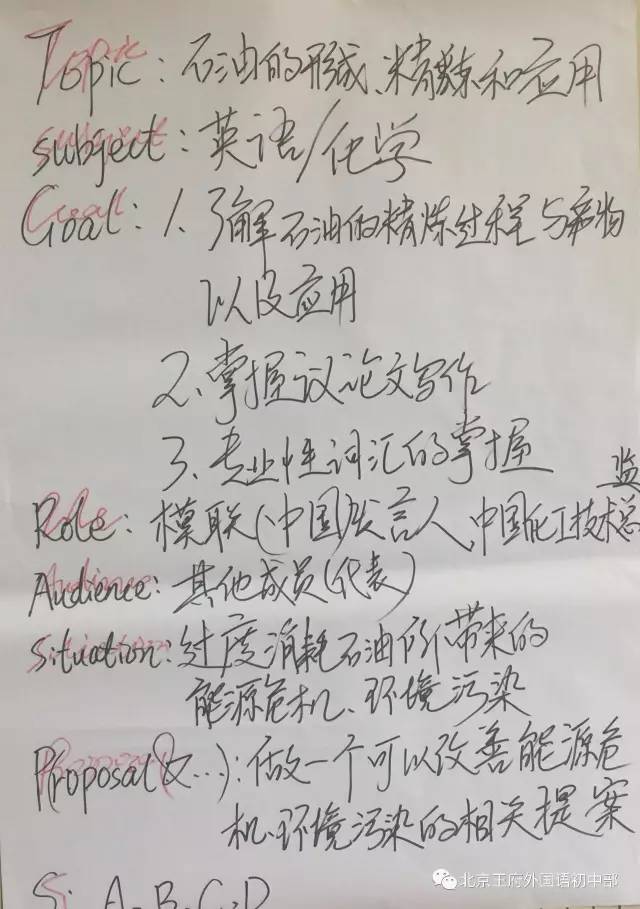 Topic：石油的形成、精炼和应用
subject：英语/化学
Goal：1、了解石油的精炼过程与产物
以及应用
2、掌握议论文写作
3、专业性词汇的掌握
Role：模联(中国)发言人、中国化工技术总监
Audience：其他成员(代表)
Situation：过度消耗石油所带来的
能源危机、环境污染
Proposal(&...)：做一个可以改善能源危
机、环境污染的相关提案
S：A、B、C、D
北京王府外国语初中部